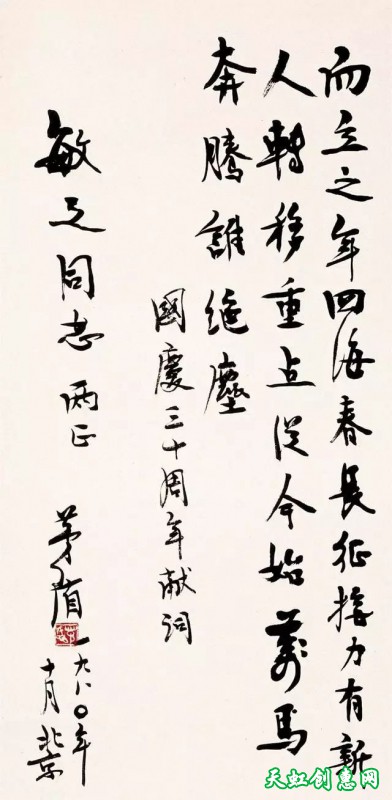 而立之年四海春長征接力有新
人轉移重点從今始萬馬
奔騰誰絶塵
國慶三十周年献词
敏之同志两正
茅盾
一九八〇年
十月北京
天虹创意网